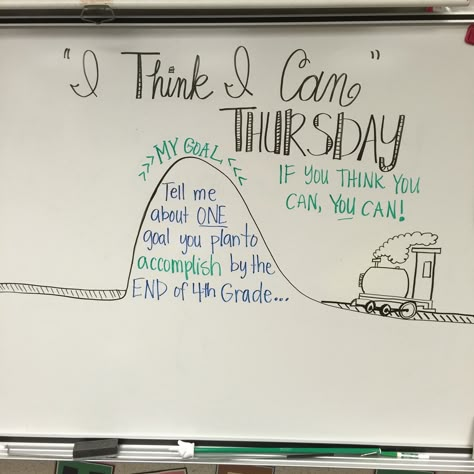 "I Think I Can"
THURSDAY
>>> MY GOAL <<<
Tell me
about ONE
goal you plan to
accomplish by the
END of 4th Grade...
IF YOU THINK YOU
CAN, YOU CAN!